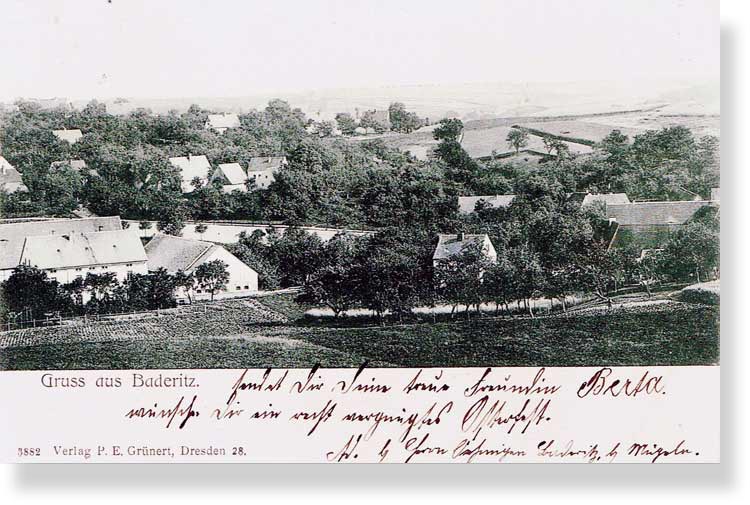 Gruss aus Baderitz. sendet Dir Deine treue Freundin Berta.
wünsche Dir ein recht vergnügtes Osterfest.
Ad. b Herrn Baderitz, b Mügeln.
5882 Verlag P. E. Grünert, Dresden 28.